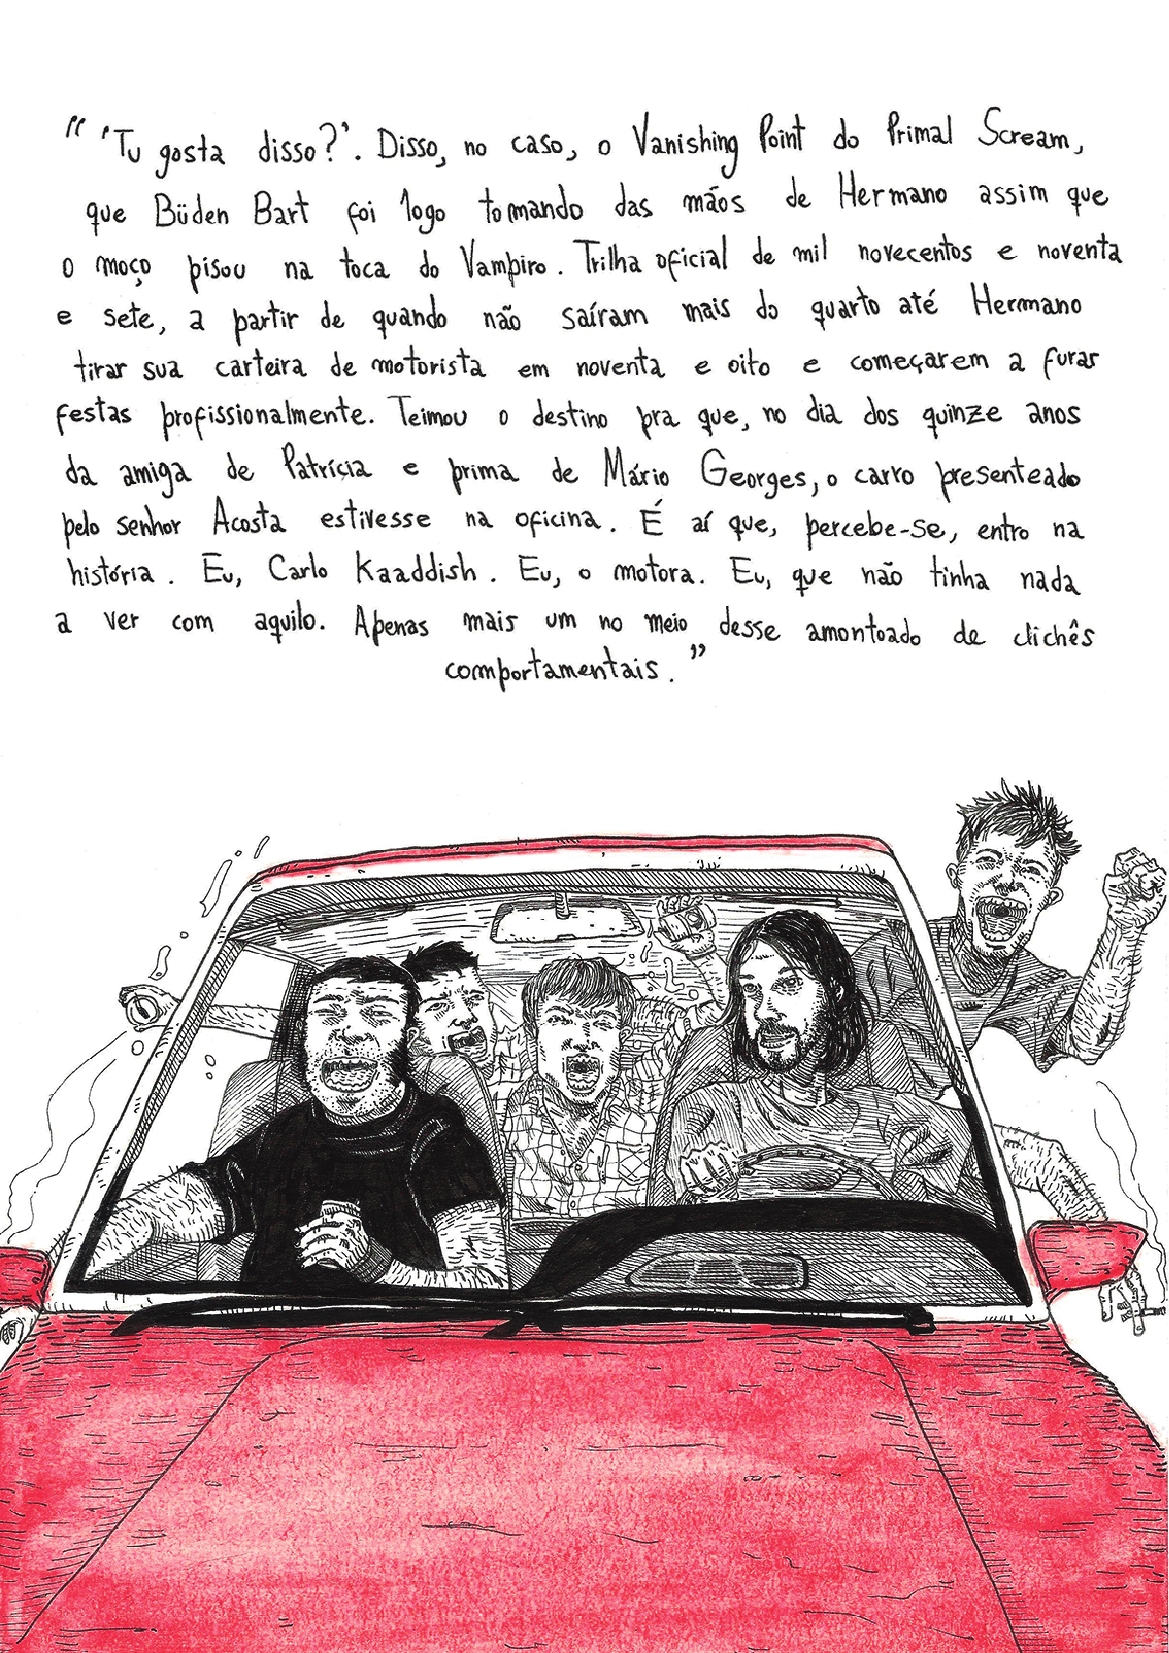 “ ‘Tu gosta disso?’. Disso, no caso, o Vanishing Point do Primal Scream,
que Büden Bart foi logo tomando das mãos de Hermano assim que
o moço pisou na toca do Vampiro. Trilha oficial de mil novecentos e noventa
e sete, a partir de quando não saíram mais do quarto até Hermano
tirar sua carteira de motorista em noventa e oito e começarem a furar
festas profissionalmente. Teimou o destino pra que, no dia dos quinze anos
da amiga de Patrícia e prima de Mário Georges, o carro presenteado
pelo senhor Acosta estivesse na oficina. É aí que, percebe-se, entro na
história. Eu, Carlo Kaaddish. Eu, o motora. Eu, que não tinha nada
a ver com aquilo. Apenas mais um no meio desse amontoado de clichês
comportamentais.”